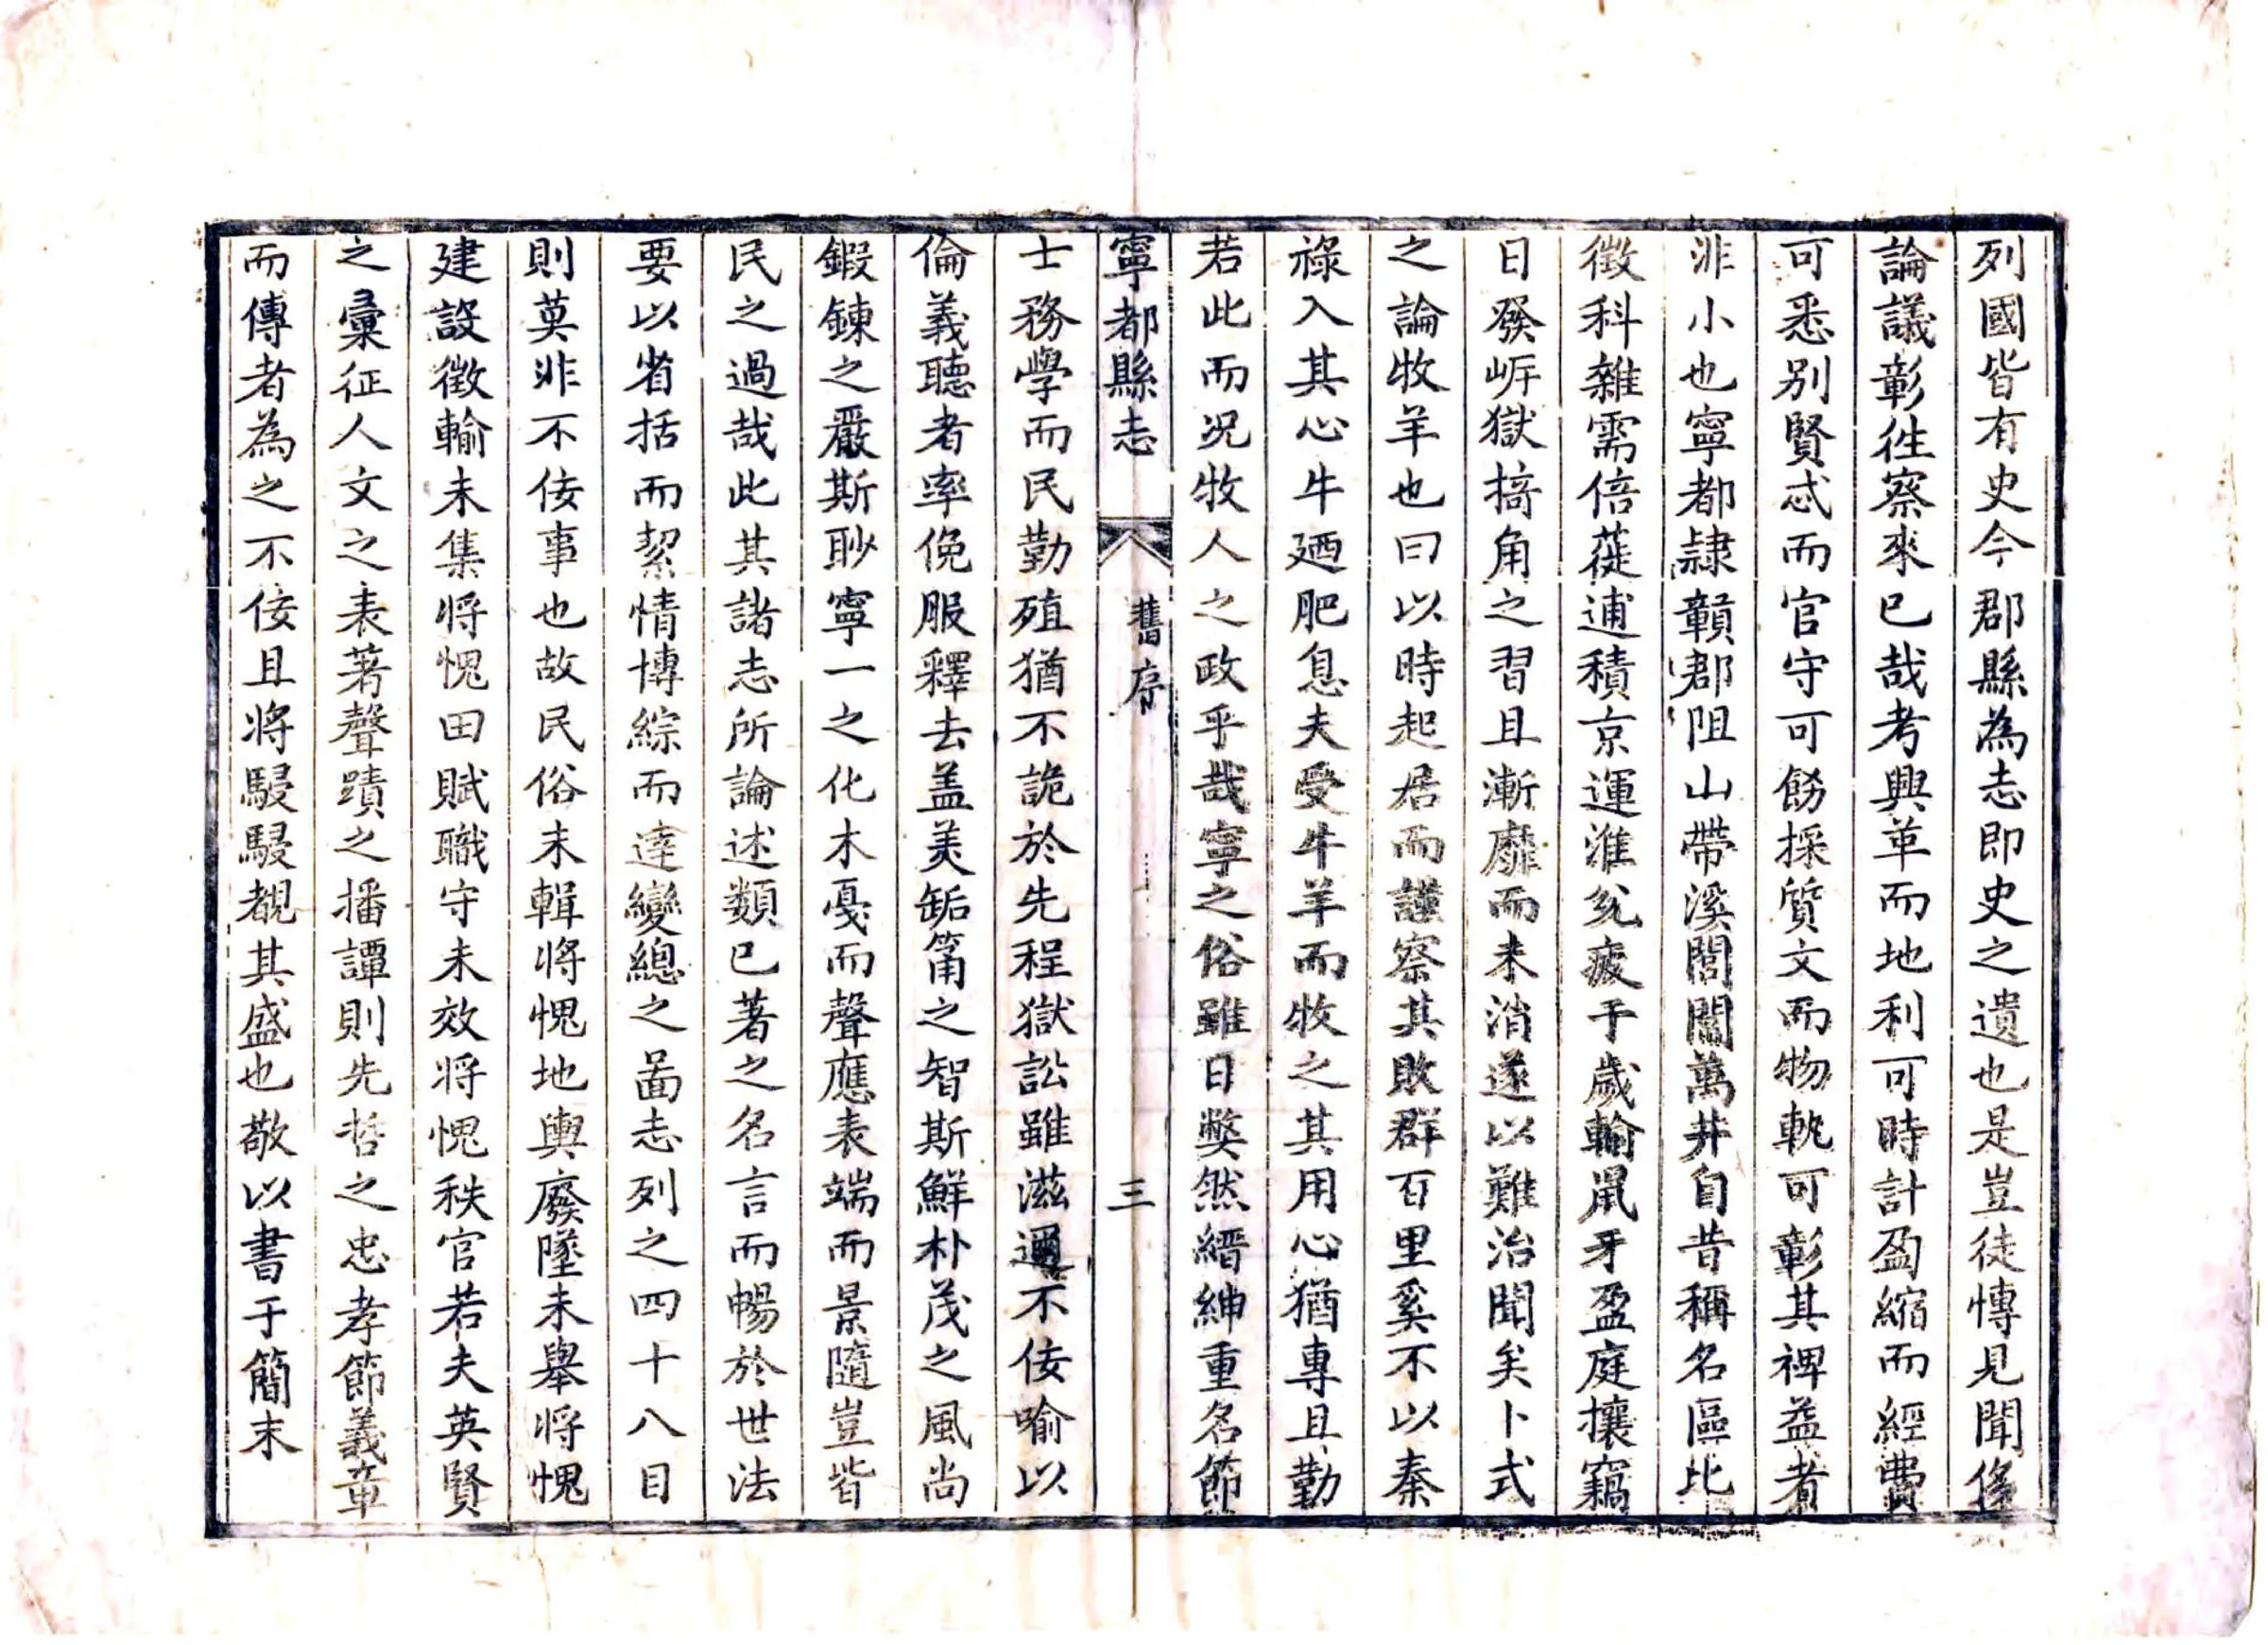 列國皆有史今郡縣為志即史之遺也是豈徒慱見聞侈
論議彰徃察來已哉考興革而地利可時計盈縮而經費
可悉別賢忒而官守可飭採質文而物軌可彰其裨益者
非小也寧都隷贑郡阻山帶溪閭闔萬井自昔稱名區比
徴科雜需倍蓰逋積京運淮兊疲于歲輸鼠牙盈庭攘竊
日發岸獄掎角之習且漸靡而未消遂以難治聞矣卜式
之論牧羊也曰以時起居而謹察其敗群百里奚不以秦
祿入其心牛廼肥息夫受牛羊而牧之其用心猶專且勤
若此而況牧人之政乎哉寧之俗雖日獘然縉紳重名節
寧都縣志 舊序 三
士務學而民勤殖猶不詭於先程獄訟雖滋邇不佞喻以
倫義聽者率俛服釋去盖美缿筩之智斯鮮朴茂之風尚
鍜鍊之嚴斯眇寧一之化木戞而聲應表端而景隨豈皆
民之過哉此其諸志所論述類已著之名言而暢於世法
要以省括而絜情博綜而達變總之啚志列之四十八目
則莫非不佞事也故民俗未輯將愧地輿廢墜未舉將愧
建設徴輸未集將愧田賦職守未效將愧秩官若夫英賢
之彙征人文之表著聲蹟之播譚則先哲之忠孝節義章
而傳者為之不佞且將駸駸覩其盛也敬以書于簡末